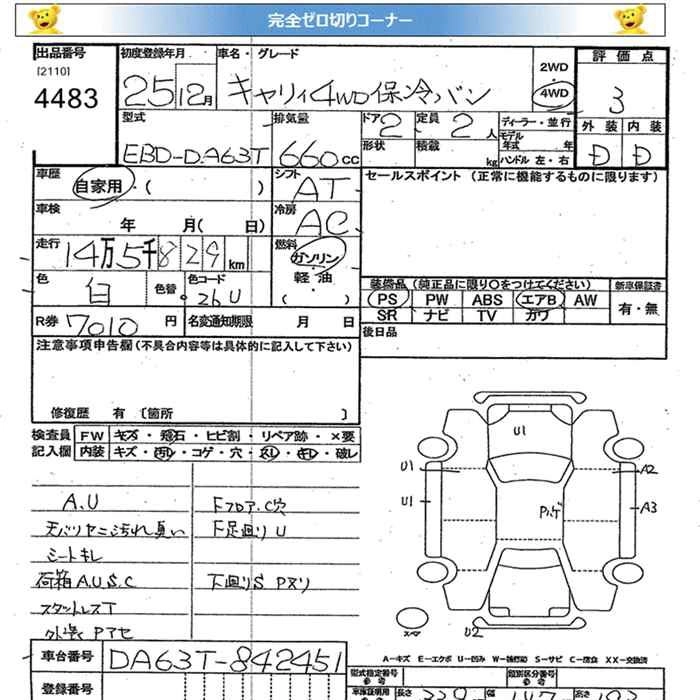 完全ゼロ切りコーナー
出品番号 初度登録年月 車名・グレード 評価点
[2110] 2WD
4483 25 12月 キャリイ4WD保冷バン 4WD 3
型式 排気量 ドア 2 定員 2人 ディーラー・並行 外装 内装
EBD-DA63T 660cc 形状 積載 kg モデル年式 年 D D
ハンドル 左・右
車歴 自家用・( ) シフト AT セールスポイント(正常に機能するものに限ります)
車検 年 月( 日) 冷房 AC
走行 14万5千829km 燃料 ガソリン
軽油
( )
色 白 色替 色コード 26U 装備品(純正品に限り○をつけてください) 新車保証書
PS PW ABS エアB AW 有・無
R券 7010円 名変通知期限 月 日 SR ナビ TV カワ
注意事項申告欄(不具合内容等は具体的に記入して下さい) 後日品
修復歴 有 [箇所 ]
検査員 FW キズ・飛石・ヒビ割・リペア跡・×要
記入欄 内装 キズ・汚れ・コゲ・穴・スレ・キレ・破レ
U1
U1 A2
U1 Pハゲ A3
A.U 下フロア.C穴
天バリヤニ汚れ臭い 下足廻りU
シートキレ
荷箱A.U.S.C 下廻りS Pヌリ
スタットレスT
外装Pアセ スペア U2
車台番号 DA63T-842451 A-キズ E-エクボ U-凹み W-補修跡 S-サビ C-腐食 XX-交換済
登録番号 型式指定番号 類別区分番号
参考 参考
長さ 339 幅 147 高さ